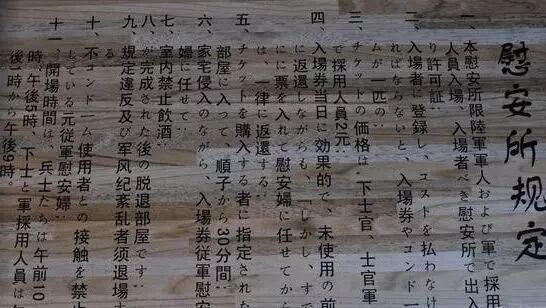 慰安所規定
一、本慰安所限陸軍軍人および軍で採用
人員入場、入場者べき慰安所で出入
り許可証;
二、入場者に登録し、コストを払わなけ
ればならないと、入場券やコンドー
ムが一匹の;
三、チケットの価格は、下士官、士官軍
で採用人員2元;
四、入場券当日に効果的で、未使用の前
に返還しながらも、「しかし、すで
に票を入れて慰安婦に任せてから
は、一律に返還する;
五、チケットを購入する者に指定された
部屋に入って、順子から30分間;
六、家宅侵入のながら、入場券従軍慰安
婦に任せて;
七、室内禁止飲酒;
八、が完成された後の脱退部屋です;
九、規定違反及び军风纪紊乱者须退場
る
十、不コンドーム使用者との接触を禁止
している元従軍慰安婦;
十一、開場時間は、兵士たちは午前10
時、午後5時、下士と軍採用人員は午
後1時から午後9時。